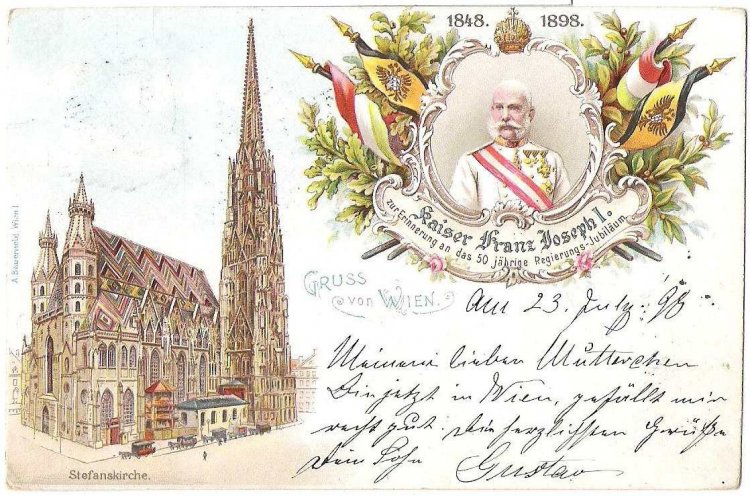 1848. 1898.
Kaiser Franz Joseph I.
zur Erinnerung an das 50 jährige Regierungs-Jubiläum.
GRUSS
von WIEN.
Am 23. July 98
Meinem lieben Mutterchen
Bin jetzt in Wien, gefällt mir
recht gut. Die herzlichsten Grüße
Dein Sohn Gustav
Stefanskirche.
Wien I.